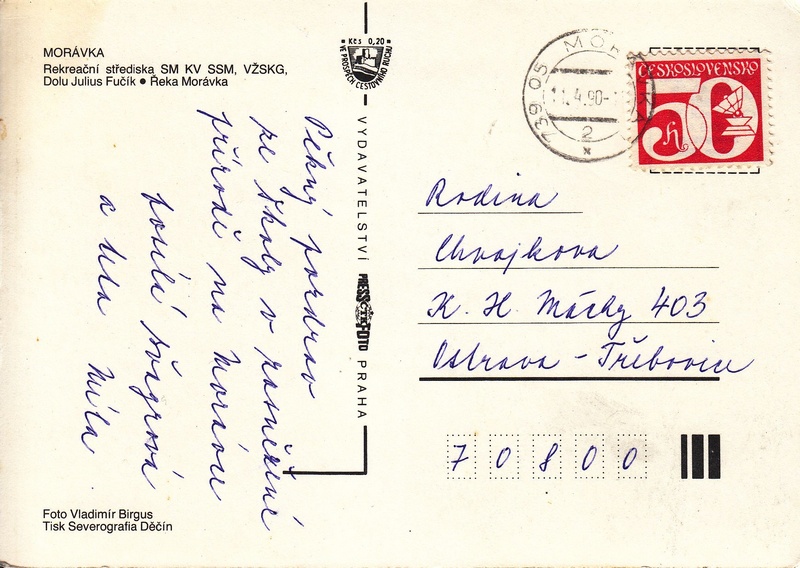 MORÁVKA
Rekreační střediska SM KV SSM, VŽSKG,
Dolu Julius Fučík ● Řeka Morávka
Pěkný pozdrav
ze školy v zasněžené
přírodě na Morávce
posílá švagrová
a teta
Míla
Foto Vladimír Birgus
Tisk Severografia Děčín
Kčs 0,20
VE PROSPĚCH CESTOVNÍHO RUCHU
VYDAVATELSTVÍ PRESSFOTO PRAHA
ČTK
739 05
11.4.90
2
ČESKOSLOVENSKO
50
h
Rodina
Chvajkova
K. H. Máchy 403
Ostrava - Třebovice
70800